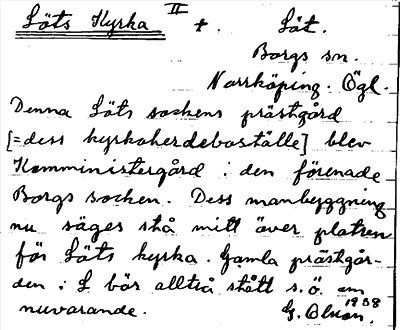 Löts Kyrka II +. Löt.
Borgs sn.
Norrköping. Ögl.
Denna Löts sockens prästgård
[= dess kyrkoherdeboställe] blev
Komministergård i den förenade
Borgs socken. Dess manbyggning
nu säges stå mitt över platsen
för Löts kyrka. Gamla prästgår-
den i L bör alltså stått s.ö. om
nuvarande. 1938
G. Olson.